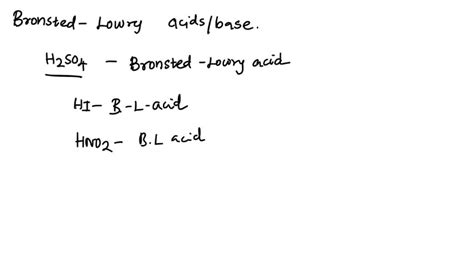 Bronsted- Lowry acids/base.
H2SO4 - Bronsted-Lowry acid
HI- B-L-acid
HNO2- B.L acid